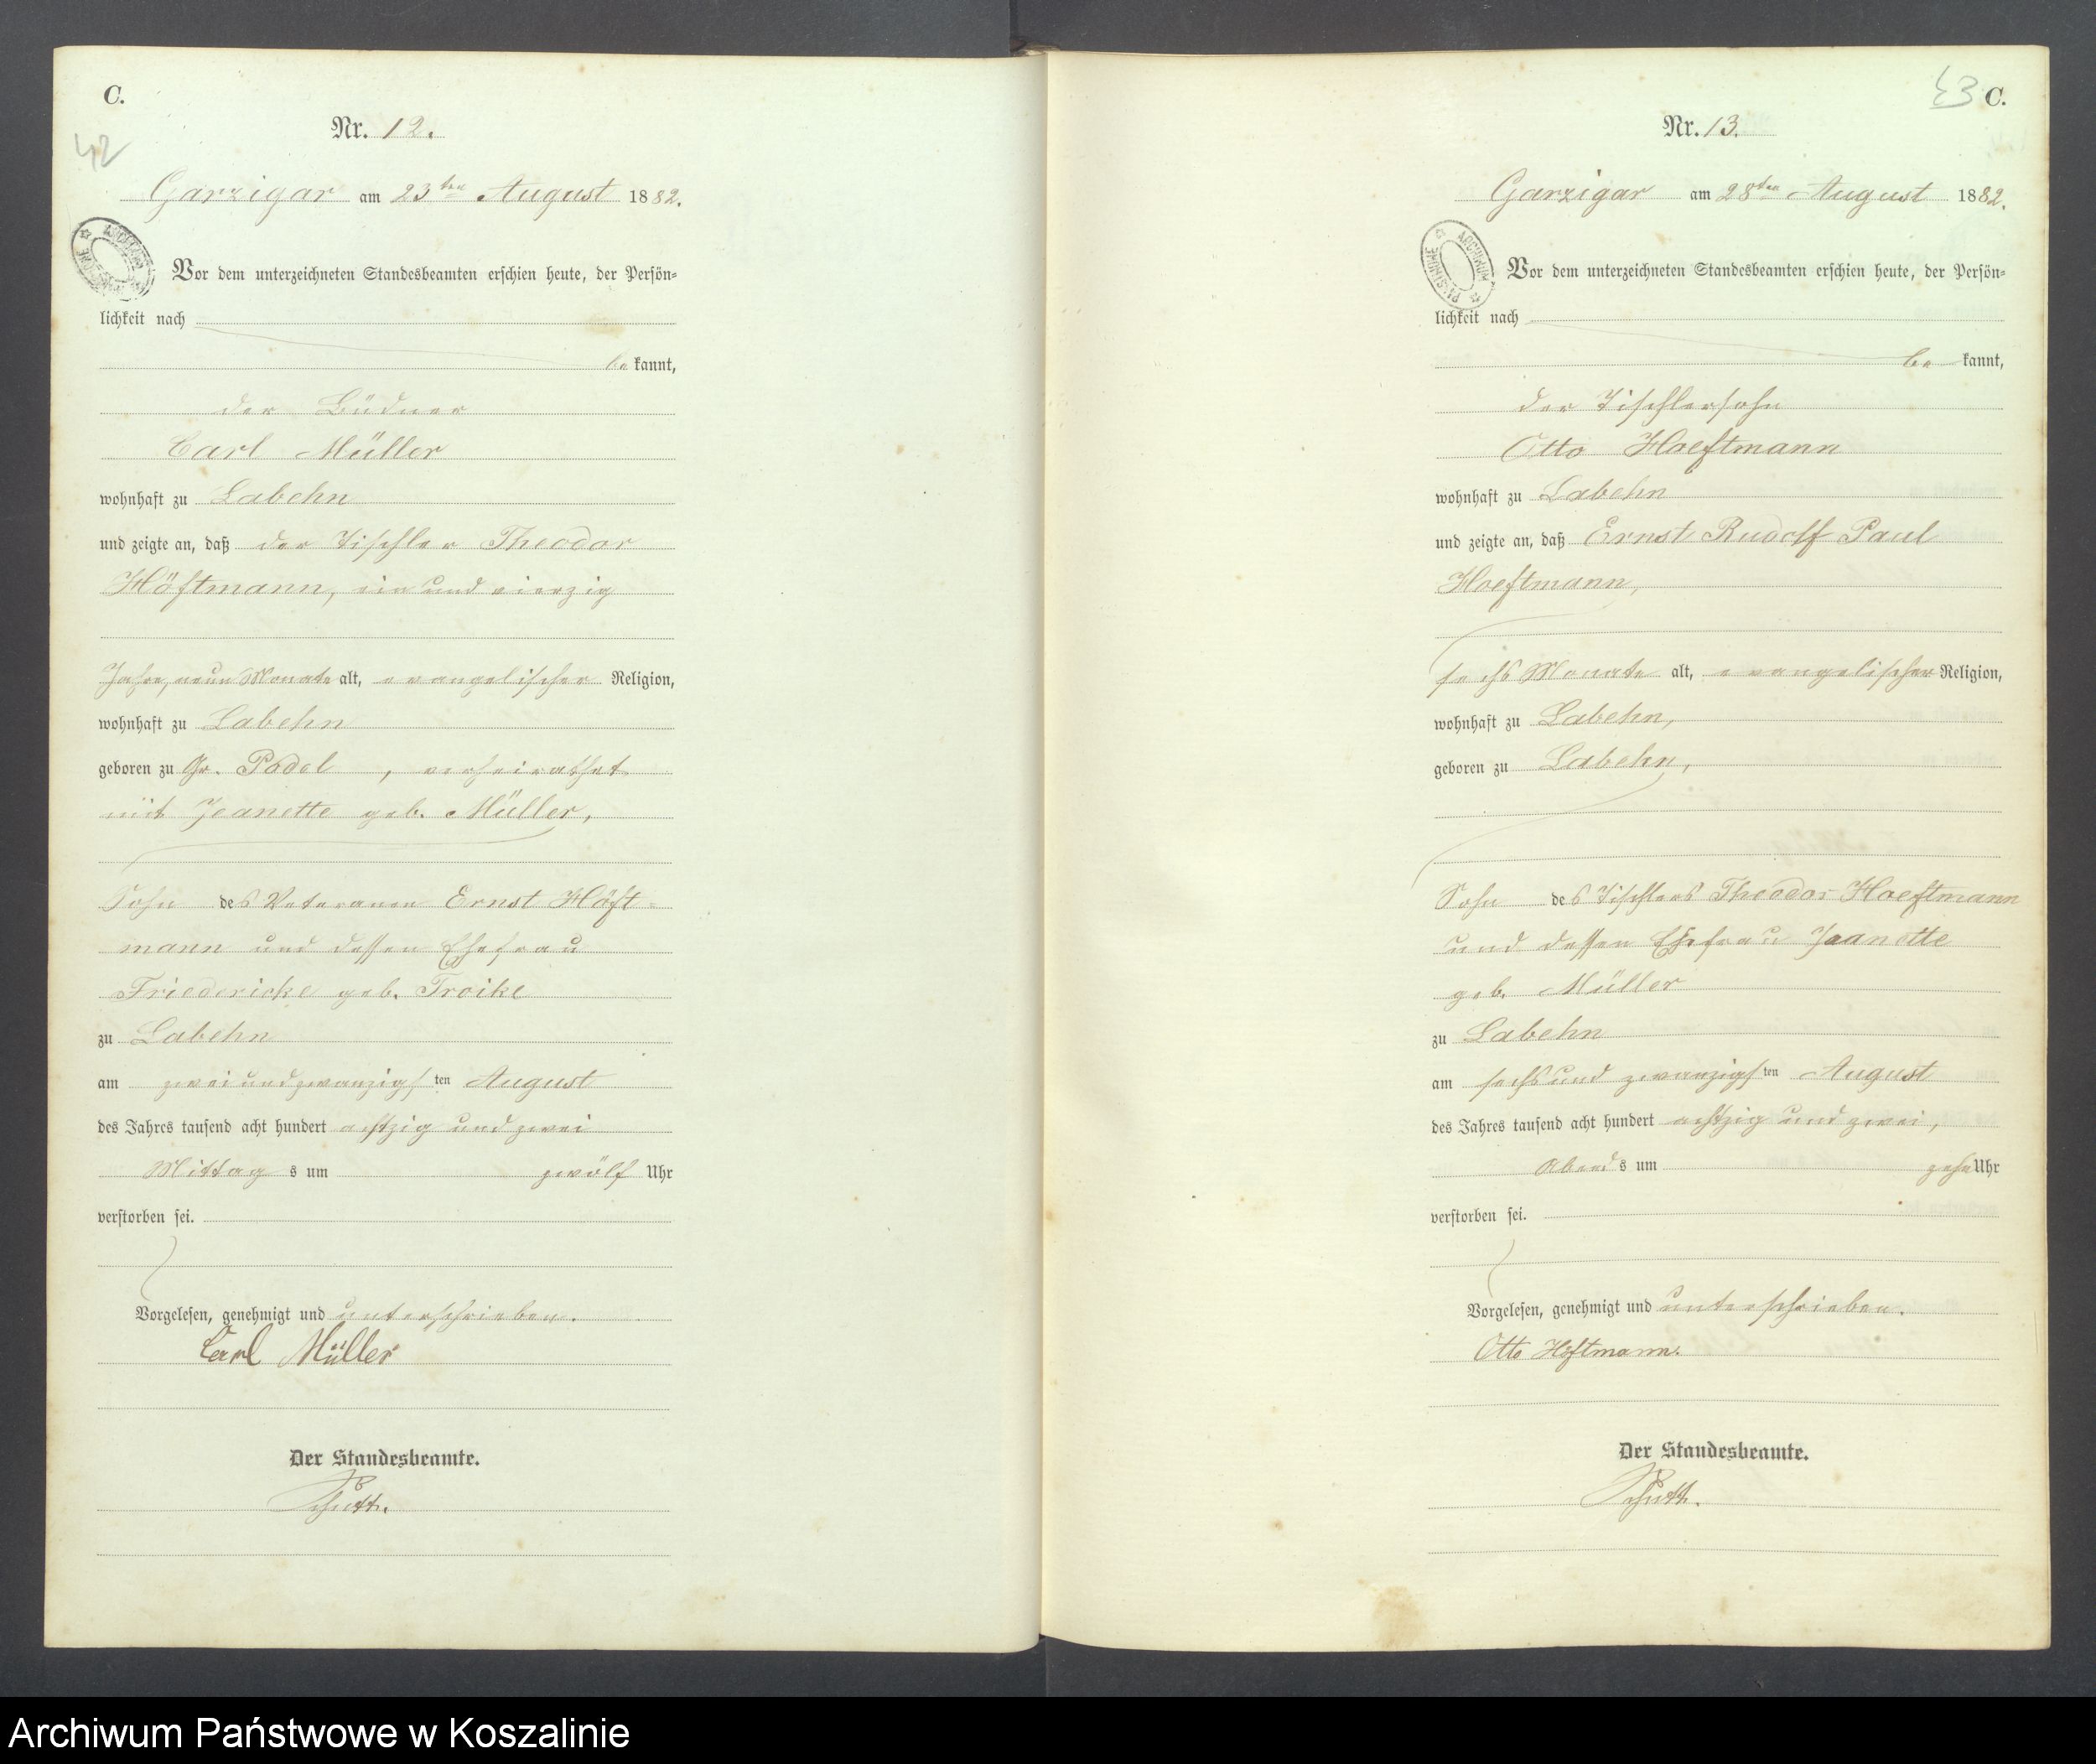 C.
42
Nr. 12.
Garzigar am 23ten August 1882.
Vor dem unterzeichneten Standesbeamten erschien heute, der Persön-
lichkeit nach
bekannt,
der Büdner
Carl Müller
wohnhaft zu Labehn
und zeigte an, daß der Tischler Theodor
Höftmann, ein und vierzig
Jahre, neun Monate alt, evangelischer Religion,
wohnhaft zu Labehn
geboren zu Gr. Podel, verheirathet
mit Jeanette geb. Müller,
Sohn des Veteranen Ernst Höft-
mann und dessen Ehefrau
Friedericke geb. Troike
zu Labehn
am zwei und zwanzigsten August
des Jahres tausend acht hundert achtzig und zwei
Mittags um zwölf Uhr
verstorben sei.
Vorgelesen, genehmigt und unterschrieben.
Carl Müller
Der Standesbeamte.
43 C.
Nr. 13.
Garzigar am 28ten August 1882.
ARCHIWUM
Vor dem unterzeichneten Standesbeamten erschien heute, der Persön-
lichkeit nach
bekannt,
der Tischlersohn
Otto Hoeftmann
wohnhaft zu Labehn
und zeigte an, daß Ernst Rudolf Paul
Hoeftmann,
sechs Monate alt, evangelischer Religion,
wohnhaft zu Labehn,
geboren zu Labehn,
Sohn des Tischlers Theodor Hoeftmann
und dessen Ehefrau Jeanette
geb. Müller
zu Labehn
am sechs und zwanzigsten August
des Jahres tausend acht hundert achtzig und zwei,
Abends um zehn Uhr
verstorben sei.
Vorgelesen, genehmigt und unterschrieben.
Otto Höftmann.
Der Standesbeamte.
Archiwum Państwowe w Koszalinie